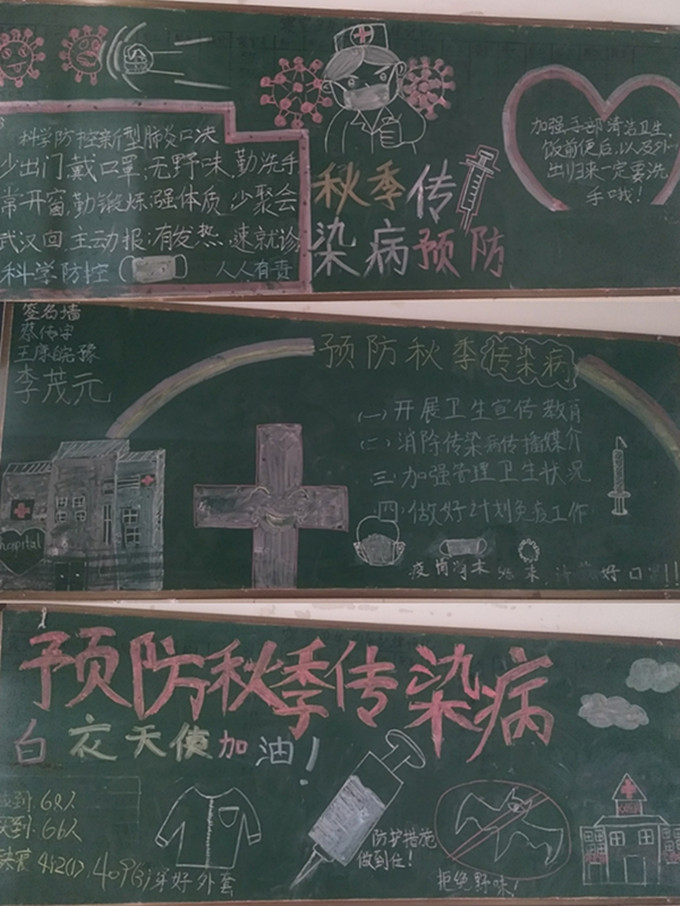 科学防控新型肺炎口决
少出门 戴口罩 无野味 勤洗手
常开窗 勤锻炼 强体质 少聚会
武汉回 主动报 有发热 速就诊
科学防控
人人有责
秋季传
染病预防
加强手部清洁卫生。
饭前便后,以及外
出归来一定要洗
手哦!
签名墙
李茂元
hospital
预防秋季传染病
(一)开展卫生宣传教育
(二)消除传染病传播媒介
三 加强管理卫生状况
四 做好计划免疫工作
预防秋季传染病
白衣天使加油!
68人
实到:66人
412(1), 409(3)
穿好外套
防护措施
做到位!
拒绝野味!